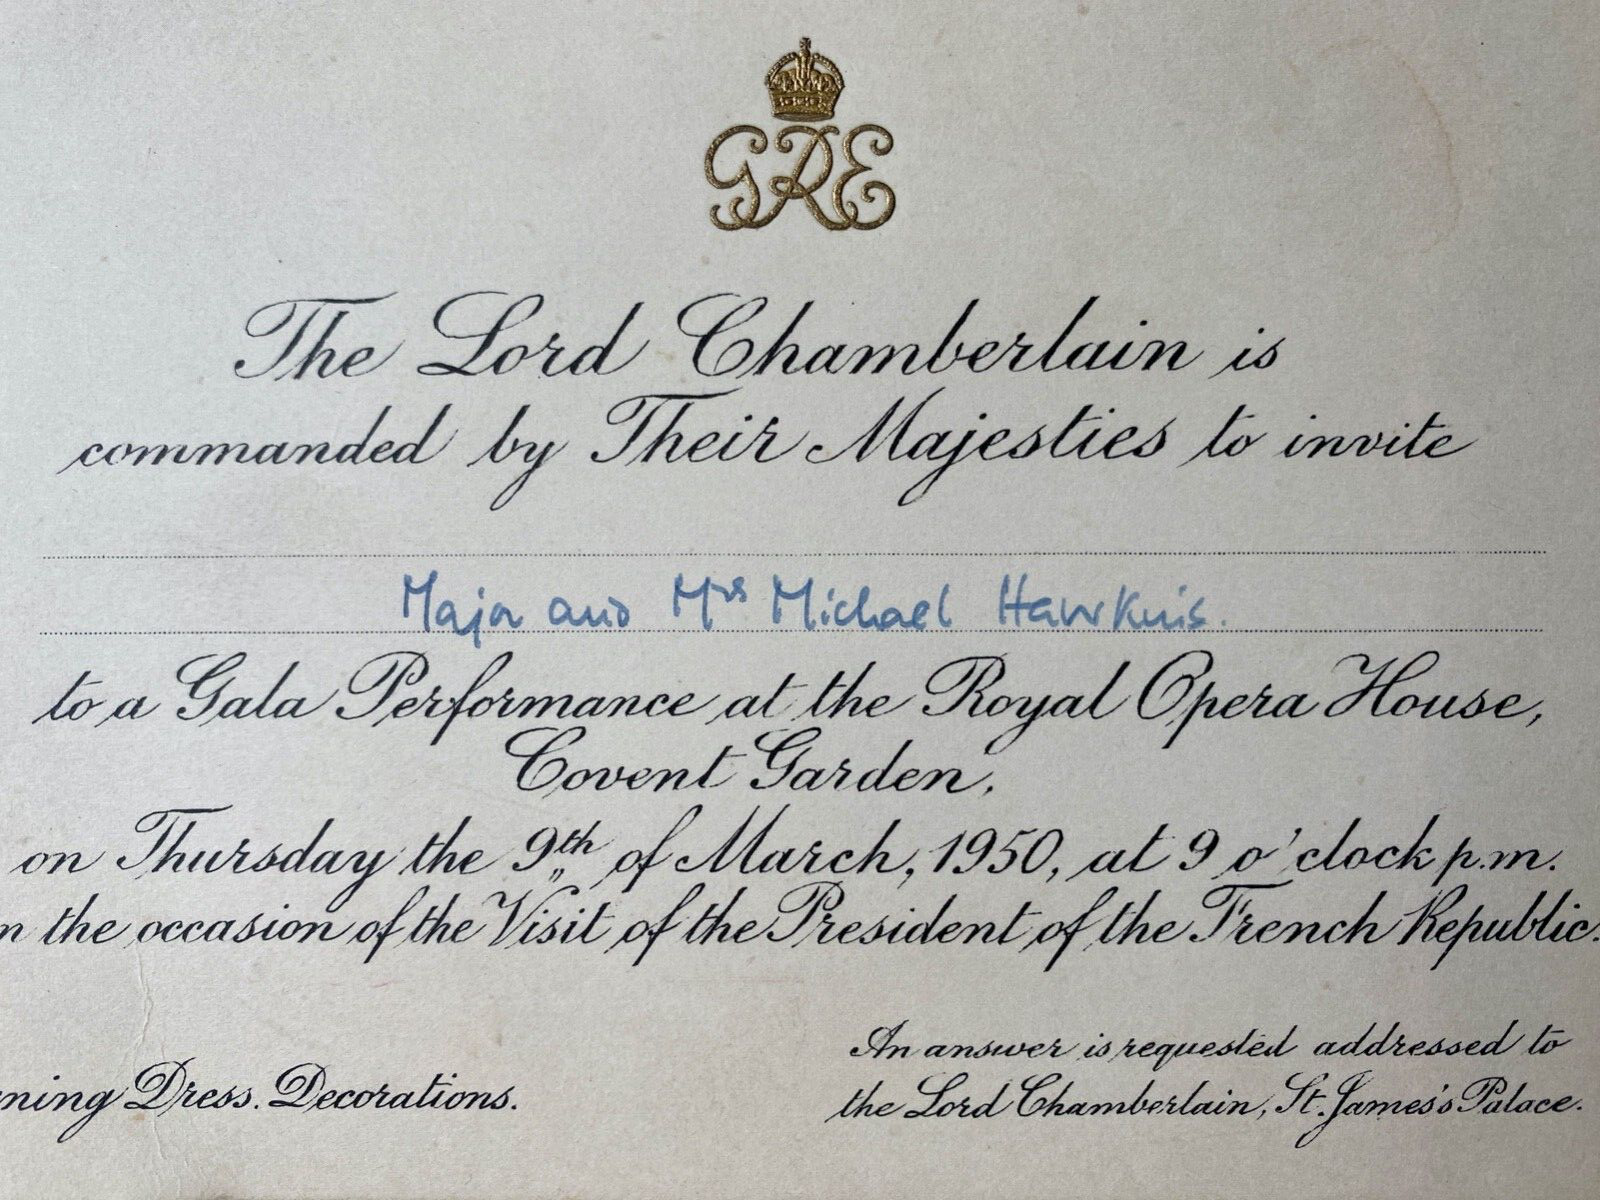 GRE
The Lord Chamberlain is
commanded by Their Majesties to invite
Major and Mrs Michael Hawkins.
to a Gala Performance at the Royal Opera House,
Covent Garden,
on Thursday the 9th of March, 1950, at 9 o'clock p.m.
n the occasion of the Visit of the President of the French Republic.
An answer is requested addressed to
ning Dress. Decorations.
the Lord Chamberlain, St. James's Palace.